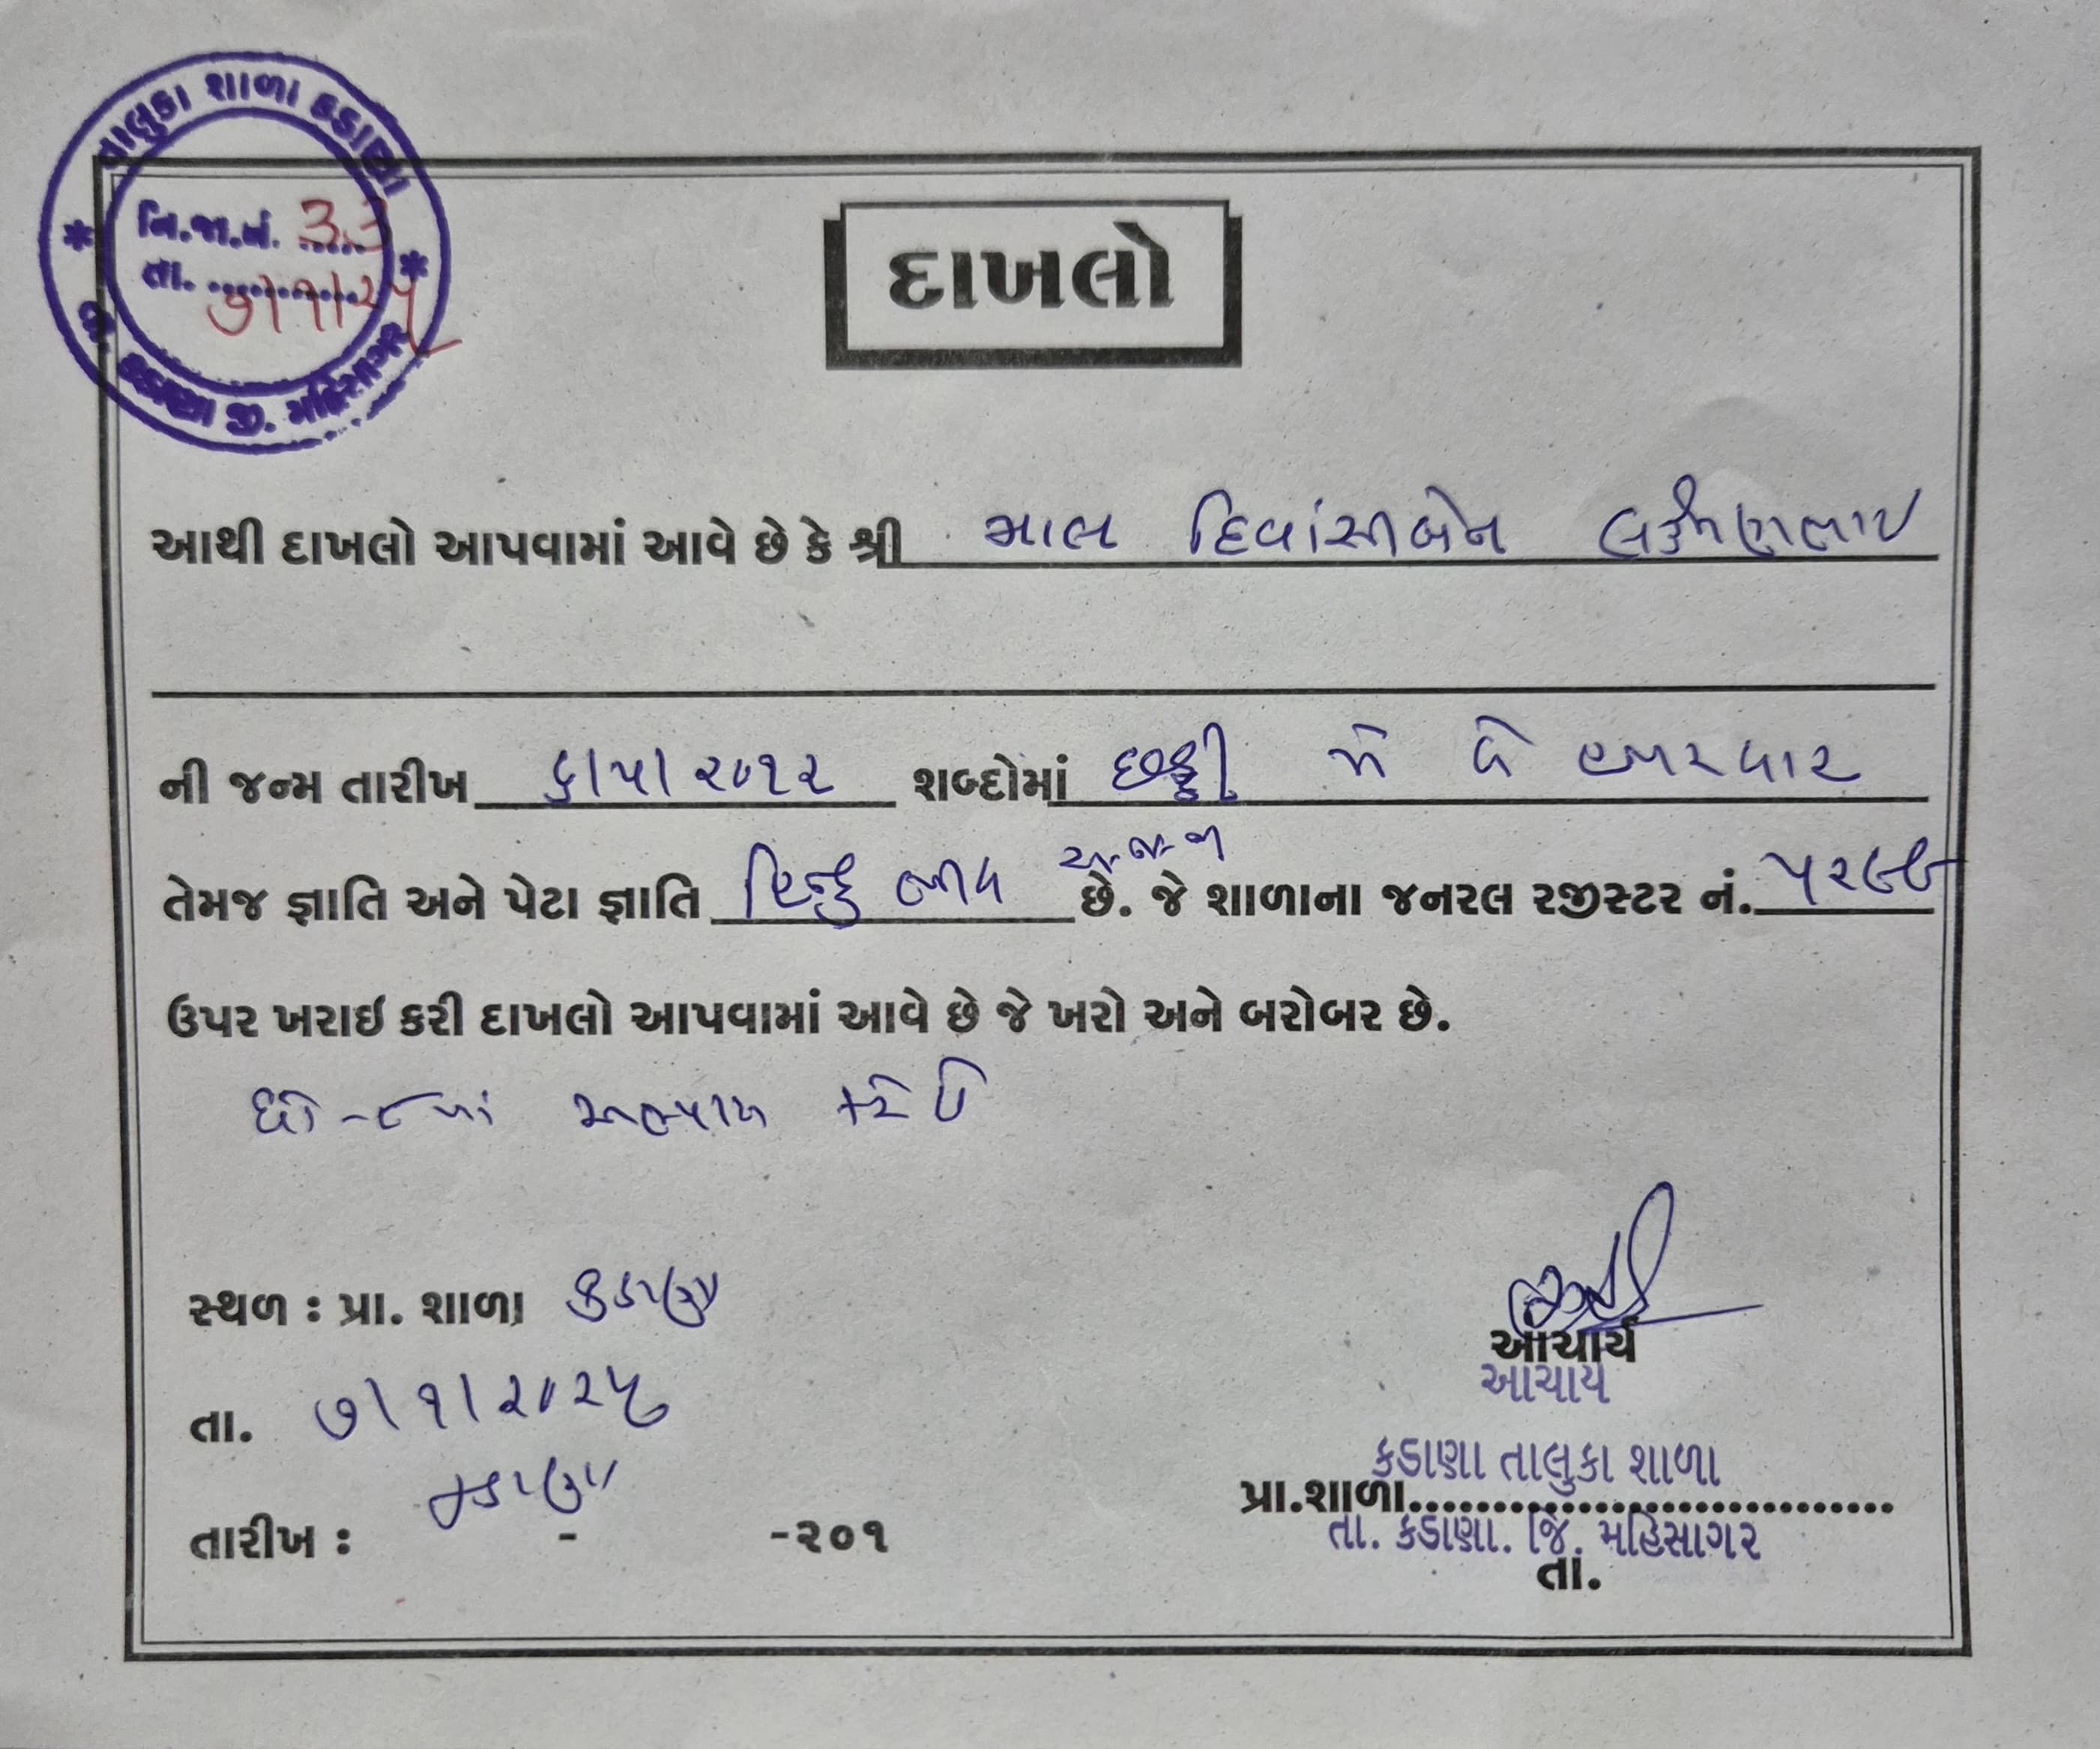 તાલુકા શાળા કડાણા
નિ.જા.નં. 33
તા. ૭/૧/૨૫
તા. કડાણા જી. મહિસાગર
દાખલો
આથી દાખલો આપવામાં આવે છે કે શ્રી માલ દિવાંસીબેન લક્ષ્મણભાઇ
ની જન્મ તારીખ ૬/૫/૨૦૧૨ શબ્દોમાં છઠ્ઠી મે બે હજાર બાર
અ.જ.જા
તેમજ જ્ઞાતિ અને પેટા જ્ઞાતિ હિન્દુ ભીલ છે. જે શાળાના જનરલ રજીસ્ટર નં. ૫૨૯૯
ઉપર ખરાઇ કરી દાખલો આપવામાં આવે છે જે ખરો અને બરોબર છે.
ધો-૮માં અભ્યાસ કરે છે
સ્થળ : પ્રા. શાળા કડાણા
તા. ૭/૧/૨૦૨૫
કડાણા
તારીખ : - -૨૦૧
આચાર્ય
આચાર્ય
કડાણા તાલુકા શાળા
પ્રા.શાળા..............................
તા. કડાણા. જિ. મહિસાગર
તા.